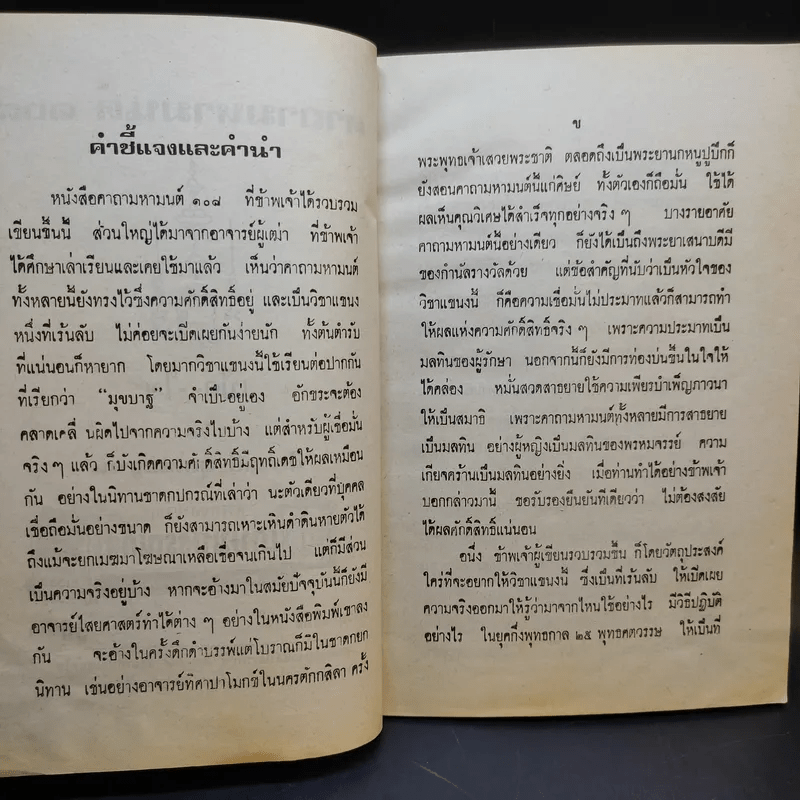 คำชี้แจงและคำนำ
หนังสือคาถามหามนต์ ๑๐๘ ที่ข้าพเจ้าได้รวบรวม
เขียนขึ้นนี้ ส่วนใหญ่ได้มาจากอาจารย์ผู้เฒ่า ที่ข้าพเจ้า
ได้ศึกษาเล่าเรียนและเคยใช้มาแล้ว เห็นว่าคาถามหามนต์
ทั้งหลายนี้ยังทรงไว้ซึ่งความศักดิ์สิทธิ์อยู่ และเป็นวิชาแขนง
หนึ่งที่เร้นลับ ไม่ค่อยจะเปิดเผยกันง่ายนัก ทั้งต้นตำรับ
ที่แน่นอนก็หายาก โดยมากวิชาแขนงนี้ใช้เรียนต่อปากกัน
ที่เรียกว่า “มุขบาฐ” จำเป็นอยู่เอง อักขระจะต้อง
คลาดเคลื่อนผิดไปจากความจริงไปบ้าง แต่สำหรับผู้เชื่อมั่น
จริง ๆ แล้ว ก็บังเกิดความศักดิ์สิทธิ์มีฤทธิ์เดชให้ผลเหมือน
กัน อย่างในนิทานชาดกปกรณ์ที่เล่าว่า นะตัวเดียวที่บุคคล
เชื่อถือมั่นอย่างขนาด ก็ยังสามารถเหาะเหินดำดินหายตัวได้
ถึงแม้จะยกเมฆมาโฆษณาเหลือเชื่อจนเกินไป แต่ก็มีส่วน
เป็นความจริงอยู่บ้าง หากจะอ้างมาในสมัยปัจจุบันนี้ก็ยังมี
อาจารย์ไสยศาสตร์ทำได้ต่าง ๆ อย่างในหนังสือพิมพ์เขาลง
กัน จะอ้างในครั้งดึกดำบรรพ์แต่โบราณก็มีในชาดกยก
นิทาน เช่นอย่างอาจารย์ทิศาปาโมกข์ในนครตักกสิลา ครั้ง
ข
พระพุทธเจ้าเสวยพระชาติ ตลอดถึงเป็นพระยานกหนูปูปีกก็
ยังสอนคาถามหามนต์นี้แก่ศิษย์ ทั้งตัวเองก็ถือมั่น ใช้ได้
ผลเห็นคุณวิเศษได้สำเร็จทุกอย่างจริง ๆ บางรายอาศัย
คาถามหามนต์นี้อย่างเดียว ก็ยังได้เป็นถึงพระยาเสนาบดีมี
ของกำนัลรางวัลด้วย แต่ข้อสำคัญที่นับว่าเป็นหัวใจของ
วิชาแขนงนี้ ก็คือความเชื่อมั่นไม่ประมาทแล้วก็สามารถทำ
ให้ผลแห่งความศักดิ์สิทธิ์จริง ๆ เพราะความประมาทเป็น
มลทินของผู้รักษา นอกจากนี้ก็ยังมีการท่องบ่นขึ้นในใจให้
ได้คล่อง หมั่นสวดสาธยายใช้ความเพียรบำเพ็ญภาวนา
ให้เป็นสมาธิ เพราะคาถามหามนต์ทั้งหลายมีการสาธยาย
เป็นมลทิน อย่างผู้หญิงเป็นมลทินของพรหมจรรย์ ความ
เกียจคร้านเป็นมลทินอย่างยิ่ง เมื่อท่านทำได้อย่างข้าพเจ้า
บอกกล่าวมานี้ ขอรับรองยืนยันทีเดียวว่า ไม่ต้องสงสัย
ได้ผลศักดิ์สิทธิ์แน่นอน
อนึ่ง ข้าพเจ้าผู้เขียนรวบรวมขึ้น ก็โดยวัตถุประสงค์
ใคร่ที่จะอยากให้วิชาแขนงนี้ ซึ่งเป็นที่เร้นลับ ให้เปิดเผย
ความจริงออกมาให้รู้ว่ามาจากไหนใช้อย่างไร มีวิธีปฏิบัติ
อย่างไร ในยุคกึ่งพุทธกาล ๒๕ พุทธศตวรรษ ให้เป็นที่